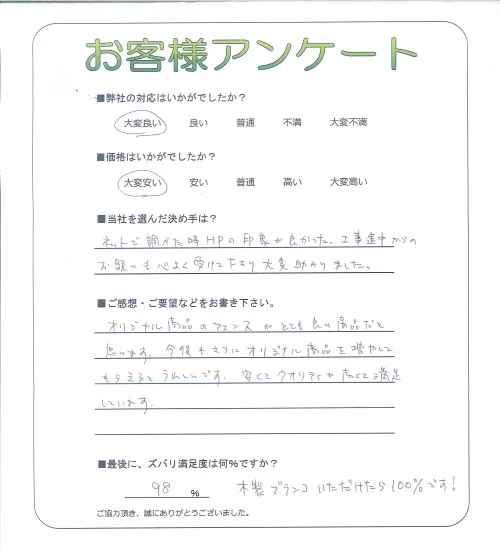 お客様アンケート
■弊社の対応はいかがでしたか？
大変良い 良い 普通 不満 大変不満
■価格はいかがでしたか？
大変安い 安い 普通 高い 大変高い
■当社を選んだ決め手は？
ネットで調べた時HPの印象が良かった。工事途中からの
お願いも心よく受けて下さり大変助かりました。
■ご感想・ご要望などをお書き下さい。
オリジナル商品のフェンスがとても良い商品だと
思います。今後もさらにオリジナル商品を増やして
もらえるとうれしいです。安くてクオリティが高くて満足
しています。
■最後に、ズバリ満足度は何%ですか？
98 % 木製ブランコいただけたら100%です！
ご協力頂き、誠にありがとうございました。